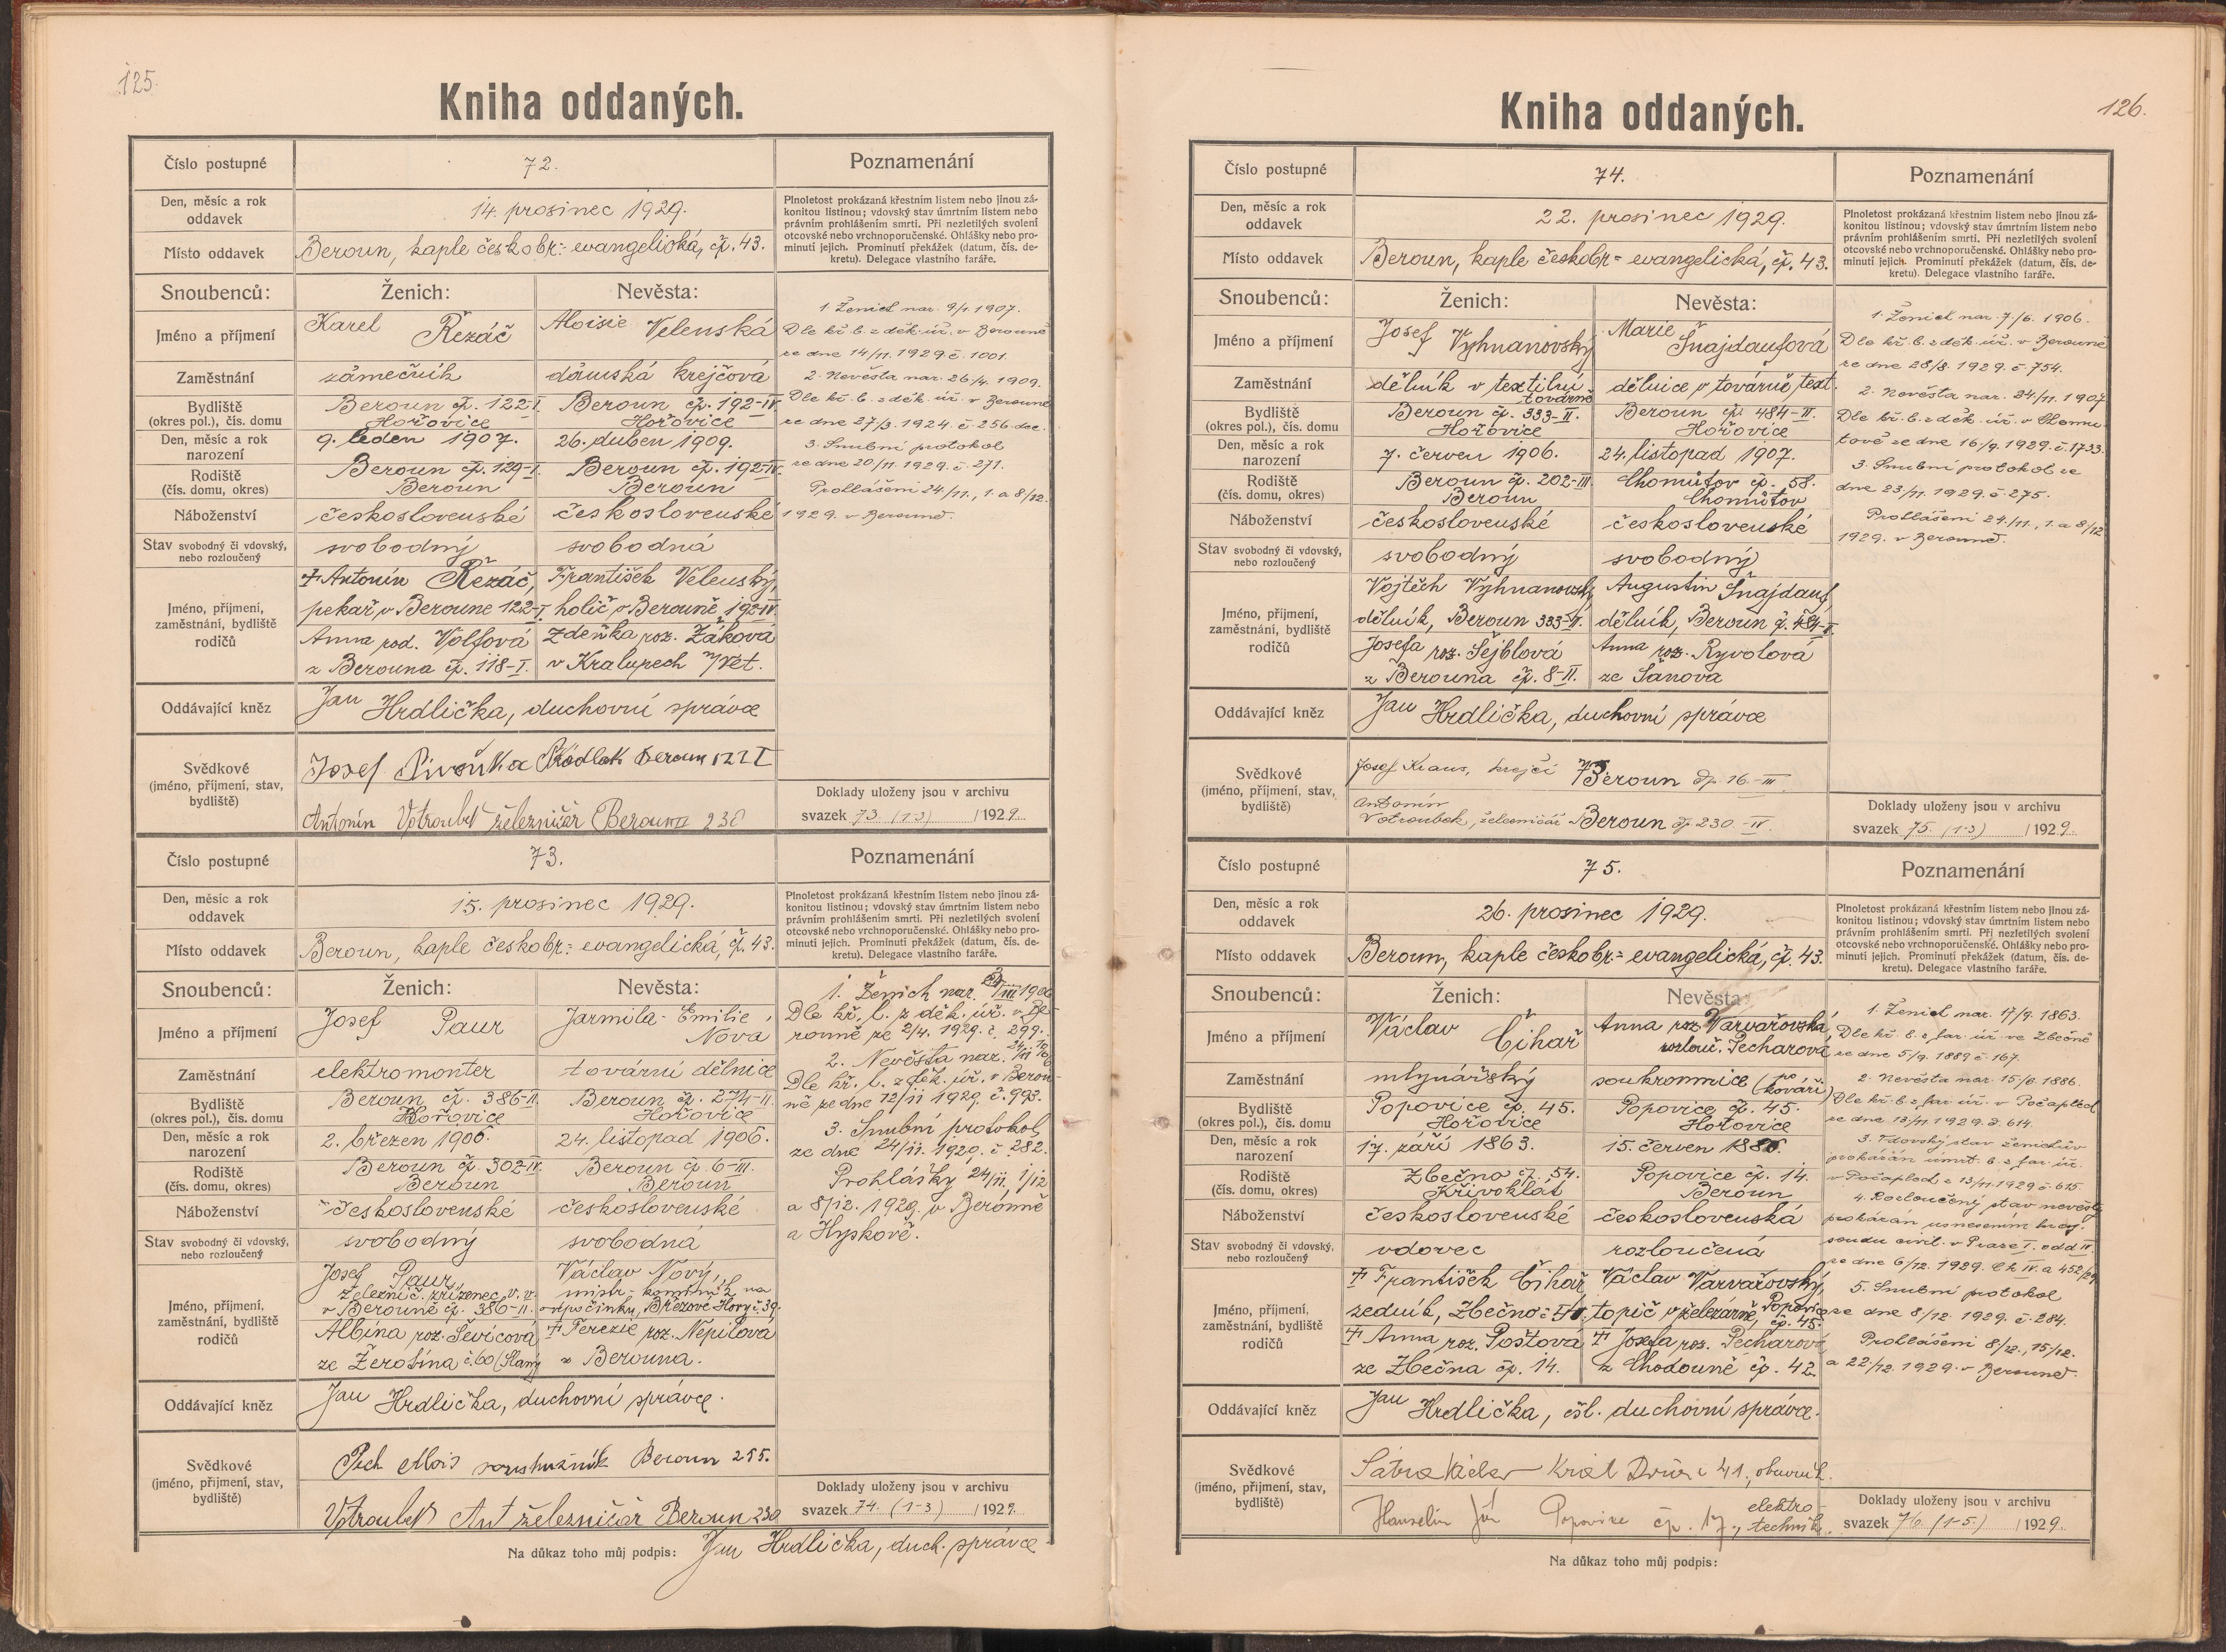 125.
Kniha oddaných.
Číslo postupné
72.
Poznamenání
Den, měsíc a rok
oddavek
14. prosinec 1929.
Plnoletost prokázaná křestním listem nebo jinou zá-
konitou listinou; vdovský stav úmrtním listem nebo
právním prohlášením smrti. Při nezletilých svolení
otcovské nebo vrchnoporučenské. Ohlášky nebo pro-
minutí jejich. Prominutí překážek (datum, čís. de-
kretu). Delegace vlastního faráře.
Místo oddavek
Beroun, kaple českobr.- evangelická, čp. 43.
Snoubenců:
Ženich:
Nevěsta:
Jméno a příjmení
Karel Řezáč
Aloisie Velenská
Zaměstnání
zámečník
dámská krejčová
Bydliště
(okres pol.), čís. domu
Beroun čp. 122-I.
Hořovice
Beroun čp. 192-IV.
Hořovice
Den, měsíc a rok
narození
9. leden 1907.
26. duben 1909.
Rodiště
(čís. domu, okres)
Beroun čp. 129-I.
Beroun
Beroun čp. 192-IV.
Beroun
Náboženství
československé
československé
Stav svobodný či vdovský,
nebo rozloučený
svobodný
svobodná
Jméno, příjmení,
zaměstnání, bydliště
rodičů
† Antonín Řezáč,
pekař v Berouně 122-I.
Anna rod. Volfová
z Berouna čp. 118-I.
František Velenský,
holič v Berouně 192-IV.
Zdeňka roz. Žáková
v Kralupech n/Vlt.
1. Ženich nar. 9/1. 1907.
Dle kř. l. z děk. úř. v Berouně
ze dne 14/11. 1929 č. 1001.
2. Nevěsta nar. 26/4. 1909.
Dle kř. l. z děk. úř. v Berouně
ze dne 27/3. 1924. č. 256.
3. Snubní protokol
ze dne 20/11. 1929. č. 271.
Prohlášeni 24/11., 1. a 8/12.
1929. v Berouně.
Oddávající kněz
Jan Hrdlička, duchovní správce
Svědkové
(jméno, příjmení, stav,
bydliště)
Josef Pivoňka Beroun 122 I
Antonín Votroubek železničář Beroun 230
Doklady uloženy jsou v archivu
svazek 73. (1-3) /1929.
Číslo postupné
73.
Poznamenání
Den, měsíc a rok
oddavek
15. prosinec 1929.
Plnoletost prokázaná křestním listem nebo jinou zá-
konitou listinou; vdovský stav úmrtním listem nebo
právním prohlášením smrti. Při nezletilých svolení
otcovské nebo vrchnoporučenské. Ohlášky nebo pro-
minutí jejich. Prominutí překážek (datum, čís. de-
kretu). Delegace vlastního faráře.
Místo oddavek
Beroun, kaple českobr.- evangelická, čp. 43.
Snoubenců:
Ženich:
Nevěsta:
Jméno a příjmení
Josef Paur
Jarmila Emilie
Nová
Zaměstnání
elektromonter
tovární dělnice
Bydliště
(okres pol.), čís. domu
Beroun čp. 386-II.
Hořovice
Beroun čp. 274-II.
Hořovice
Den, měsíc a rok
narození
2. březen 1906.
24. listopad 1906.
Rodiště
(čís. domu, okres)
Beroun čp. 302-IV.
Beroun
Beroun čp. 6-III.
Beroun
Náboženství
československé
československé
Stav svobodný či vdovský,
nebo rozloučený
svobodný
svobodná
Jméno, příjmení,
zaměstnání, bydliště
rodičů
Josef Paur,
železnič. zřízenec v. v.
v Berouně čp. 386-II.
Albina roz. Ševicová
ze Žerotína č. 60 (Slaný
Václav Nový,
mistr na
odpočinku, Březové Hory č. 39.
† Terezie roz. Nepilová
z Berouna.
1. Ženich nar. 2/III 1906
Dle kř. l. z děk. úř. v Be-
rouně ze 2/4. 1929. č. 299.
2. Nevěsta nar. 24/11 1906
Dle kř. l. z děk. úř. v Berou-
ně ze dne 12/11 1929. č. 993.
3. Snubní protokol
ze dne 24/11. 1929. č. 282.
Prohlášky 24/11. 1/12
a 8/12. 1929. v Berouně
a Hýskově.
Oddávající kněz
Jan Hrdlička, duchovní správce.
Svědkové
(jméno, příjmení, stav,
bydliště)
Pech Alois Beroun 255.
Votroubek Ant železničář Beroun 230
Doklady uloženy jsou v archivu
svazek 74. (1-3) /1929.
Na důkaz toho můj podpis: Jan Hrdlička, duch. správce
126.
Kniha oddaných.
Číslo postupné
74.
Poznamenání
Den, měsíc a rok
oddavek
22. prosinec 1929.
Plnoletost prokázaná křestním listem nebo jinou zá-
konitou listinou; vdovský stav úmrtním listem nebo
právním prohlášením smrti. Při nezletilých svolení
otcovské nebo vrchnoporučenské. Ohlášky nebo pro-
minutí jejich. Prominutí překážek (datum, čís. de-
kretu). Delegace vlastního faráře.
Místo oddavek
Beroun, kaple českobr.- evangelická, čp. 43.
Snoubenců:
Ženich:
Nevěsta:
Jméno a příjmení
Josef Vyhnanovský
Marie Šnajdaufová
Zaměstnání
dělník v textilní
továrně
dělnice v továrně text.
Bydliště
(okres pol.), čís. domu
Beroun čp. 333-II.
Hořovice
Beroun čp. 484-II.
Hořovice
Den, měsíc a rok
narození
7. červen 1906.
24. listopad 1907.
Rodiště
(čís. domu, okres)
Beroun čp. 202-III
Beroun
Chomútov čp. 58.
Chomútov
Náboženství
československé
československé
Stav svobodný či vdovský,
nebo rozloučený
svobodný
svobodný
Jméno, příjmení,
zaměstnání, bydliště
rodičů
Vojtěch Vyhnanovský
dělník, Beroun 333-II.
Josefa roz. Šejblová
z Berouna čp. 8-II.
Augustin Šnajdauf
dělník, Beroun č. 484-II.
Anna roz. Ryvolová
ze Šanova
1. Ženich nar. 7/6. 1906.
Dle kř. l. z děk. úř. v Berouně
ze dne 28/8. 1929. č. 754.
2. Nevěsta nar. 24/11. 1907
Dle kř. l. z děk. úř. v Chomu-
tově ze dne 16/9. 1929. č. 1733.
3. Snubní protokol ze
dne 23/11. 1929. č. 275.
Prohlášeni 24/11., 1. a 8/12
1929. v Berouně.
Oddávající kněz
Jan Hrdlička, duchovní správce
Svědkové
(jméno, příjmení, stav,
bydliště)
Josef Kraus, krejčí Beroun čp. 16-III
Antonín
Votroubek, železničář Beroun čp. 230-IV.
Doklady uloženy jsou v archivu
svazek 75. (1-3) /1929.
Číslo postupné
75.
Poznamenání
Den, měsíc a rok
oddavek
26. prosinec 1929.
Plnoletost prokázaná křestním listem nebo jinou zá-
konitou listinou; vdovský stav úmrtním listem nebo
právním prohlášením smrti. Při nezletilých svolení
otcovské nebo vrchnoporučenské. Ohlášky nebo pro-
minutí jejich. Prominutí překážek (datum, čís. de-
kretu). Delegace vlastního faráře.
Místo oddavek
Beroun, kaple českobr.- evangelická, čp. 43.
Snoubenců:
Ženich:
Nevěsta:
Jméno a příjmení
Václav Čihař
Anna roz. Varvařovská
rozlouč. Pecharová
Zaměstnání
mlynářský
soukromnice (po
kováři)
Bydliště
(okres pol.), čís. domu
Popovice čp. 45.
Hořovice
Popovice čp. 45.
Hořovice
Den, měsíc a rok
narození
17. září 1863.
15. červen 1886.
Rodiště
(čís. domu, okres)
Zbečno čp. 54.
Křivoklát
Popovice čp. 14.
Beroun
Náboženství
československé
československá
Stav svobodný či vdovský,
nebo rozloučený
vdovec
rozloučená
Jméno, příjmení,
zaměstnání, bydliště
rodičů
† František Čihař
zedník, Zbečno
† Anna roz. Poštová
ze Zbečna čp. 14.
Václav Varvařovský,
topič v železárně, Popovice
čp. 45.
† Josefa roz. Pecharová
z Chodouně čp. 42.
1. Ženich nar. 17/9. 1863.
Dle kř. l. z far. úř. ve Zbečně
ze dne 5/9. 1889 č. 167.
2. Nevěsta nar. 15/6. 1886.
Dle kř. l. z far. úř. v Počaplech
ze dne 13/11. 1929. č. 614.
3. Vdovský stav ženichův
prokázán úmrt. l. z far. úř.
v Počaplech z 13/11. 1929 č. 615.
4. Rozloučený stav nevěsty
prokázán usnesením kraj.
soudu civil. v Praze I. odd. IV.
ze dne 6/12. 1929. Ck IV. a 452/29.
5. Snubní protokol
ze dne 8/12. 1929. č. 284.
Prohlášeni 8/12., 15/12.
a 22/12. 1929. v Berouně.
Oddávající kněz
Jan Hrdlička, čsl. duchovní správce.
Svědkové
(jméno, příjmení, stav,
bydliště)
Václav Král. Dvůr č 41., obuvník.
Jan Popovice čp. 17., elektro-
technik.
Doklady uloženy jsou v archivu
svazek 76. (1-5.) /1929.
Na důkaz toho můj podpis: